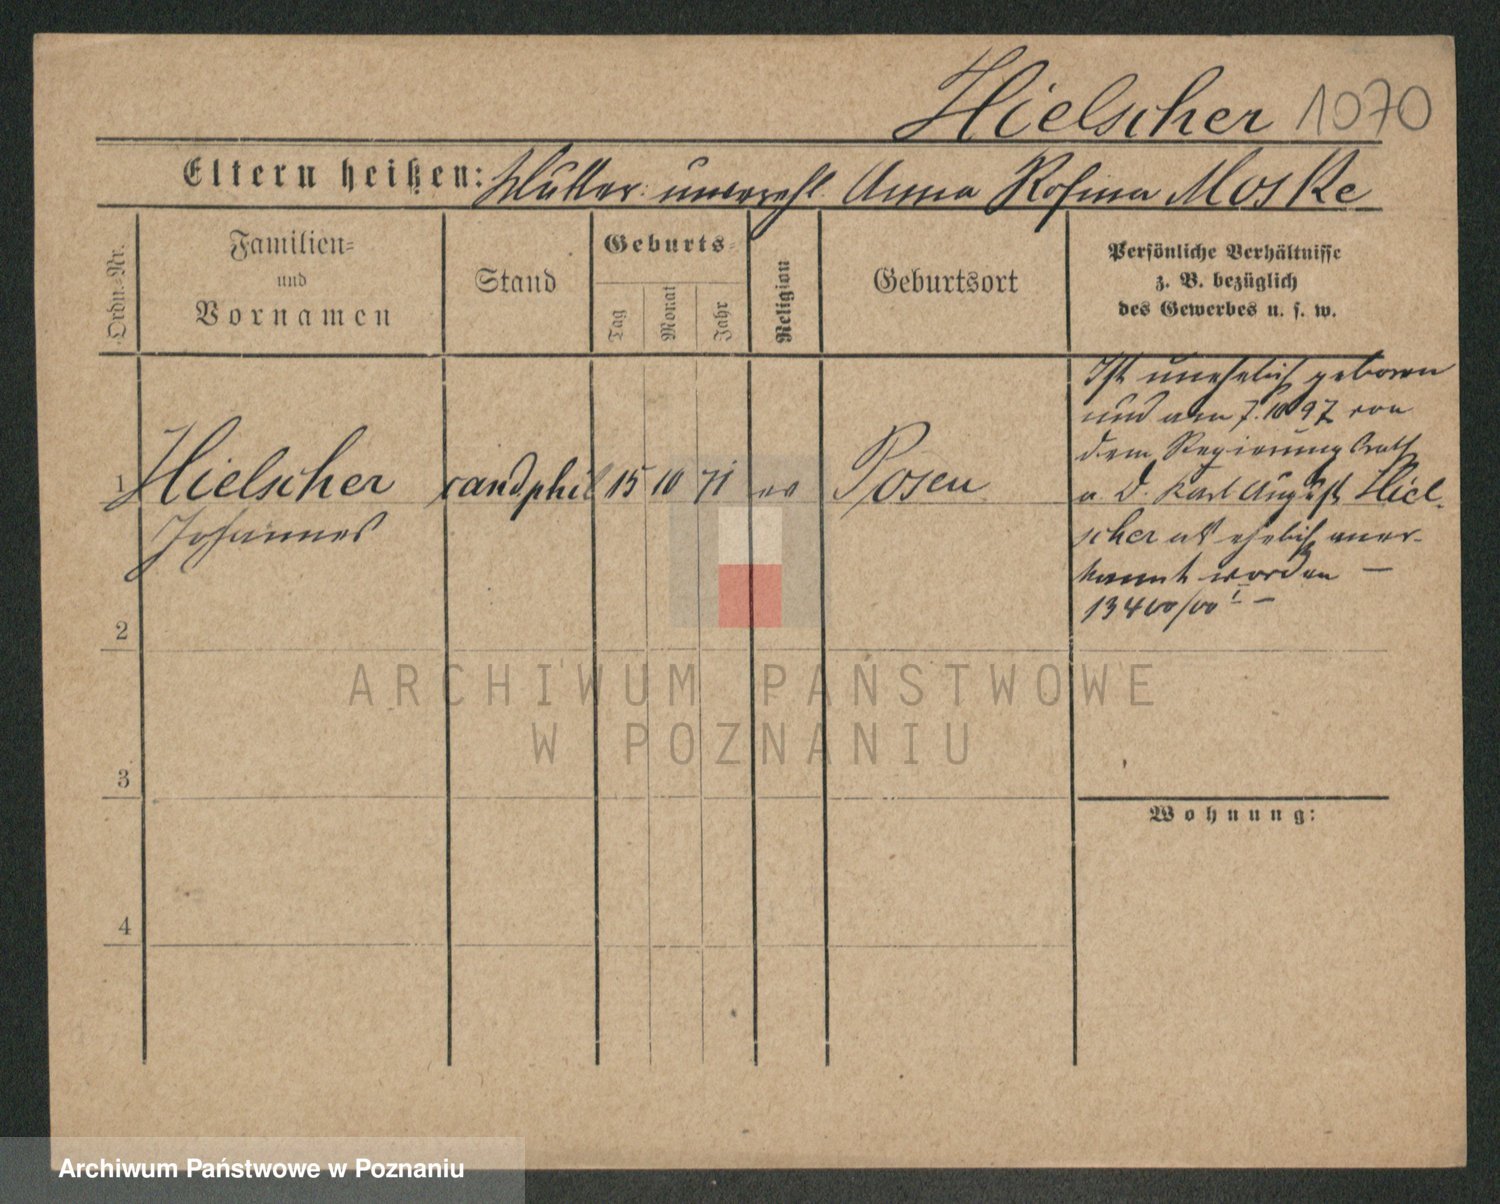 Hielscher 1070
Eltern heißen: Mutter: unverehl Anna Rosina Moske
Ordn.-Nr.
Familien-
und
Vornamen
Stand
Geburts-
Tag
Monat
Jahr
Religion
Geburtsort
Persönliche Verhältnisse
z. B. bezüglich
des Gewerbes u. s. w.
1 Hielscher cand phil 15 10 71 ev Posen
Johannes
Ist unehelich geboren
und am 7.10 97 von
dem Regierungsrath
a. D. Karl August Hiel-
scher als ehelich aner-
kannt worden —
13400/00
2
3
4
Wohnung:
ARCHIWUM PAŃSTWOWE
W POZNANIU
Archiwum Państwowe w Poznaniu